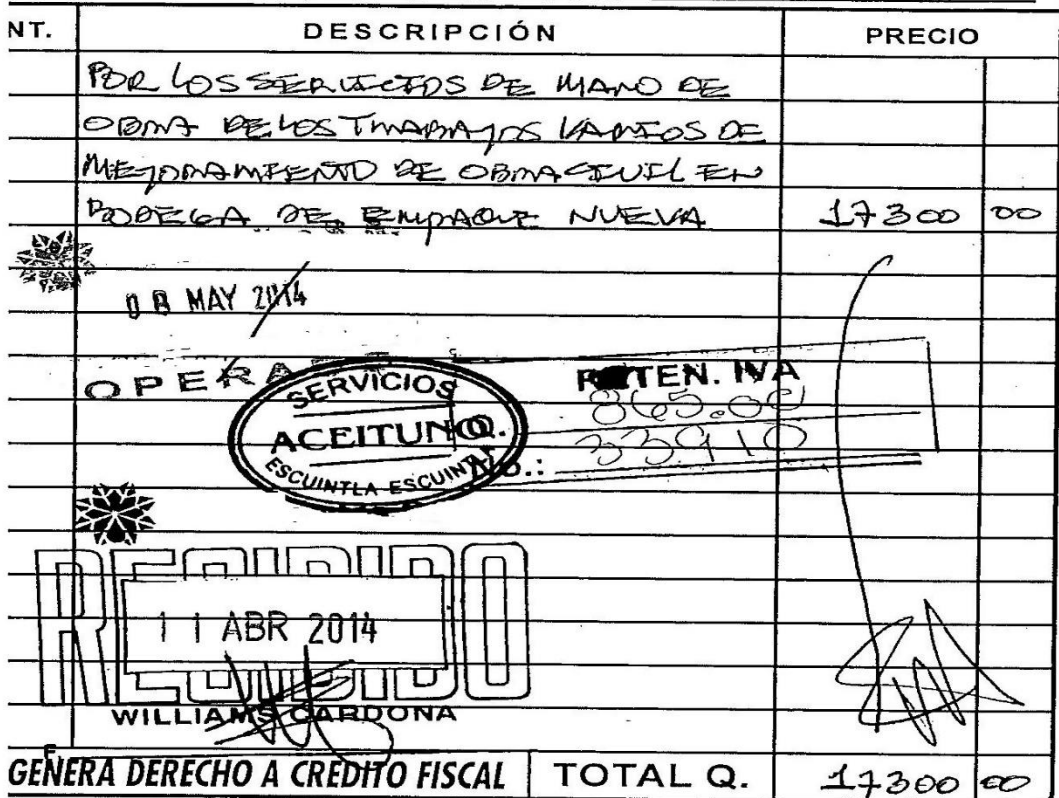 NT. DESCRIPCIÓN PRECIO
POR LOS SERVICIOS DE MANO DE
OBRA DE LOS TRABAJOS VARIOS DE
MEJORAMIENTO DE OBRA CIVIL EN
BODEGA DE EMPAQUE NUEVA 17300 00
08 MAY 2014
OPERA
SERVICIOS
ACEITUNO
ESCUINTLA ESCUINTLA
RETEN. IVA
Q. 865.00
No.: 33910
RECIBIDO
11 ABR 2014
WILLIAMS CARDONA
GENERA DERECHO A CREDITO FISCAL TOTAL Q. 17300 00